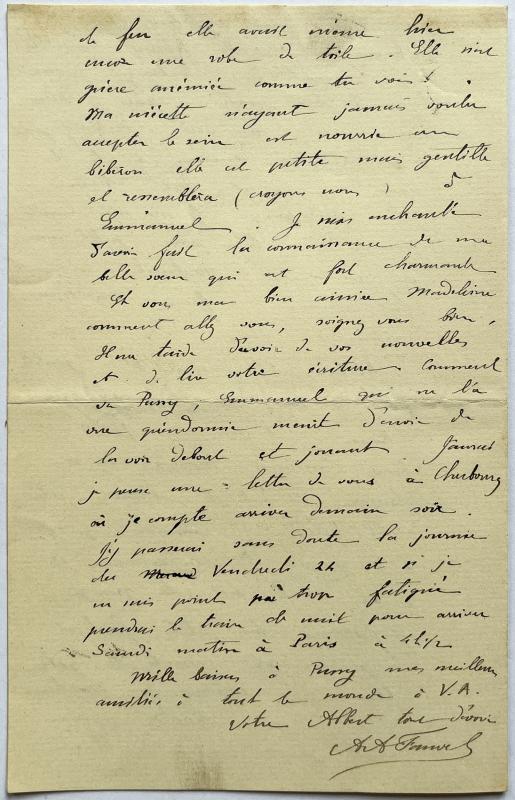 de feu elle avait même hier
encore une robe de toile. Elle n'est
guère anémiée comme tu vois!
Ma niécette n'ayant jamais voulu
accepter le sein est nourrie au
biberon elle est petite mais gentille
et ressemblera (croyons nous) à
Emmanuel. Je suis enchanté
d'avoir fait la connaissance de ma
belle sœur qui est fort charmante
Et vous ma bien aimée Madeleine
comment allez vous, soignez vous bien,
Il me tarde d'avoir de vos nouvelles
et de lire votre écriture. Comment
va Pussy, Emmanuel qui ne l'a
vue qu'endormie meurt d'envie de
la voir debout et jouant. J'aurai
je pense une lettre de vous à Cherbourg
où je compte arriver demain soir.
J'y passerai sans doute la journée
du Vendredi 24 et si je
ne suis point trop fatigué
prendrai le train de nuit pour arriver
Samedi matin à Paris à 4h 1/2
Mille baisers à Pussy mes meilleures
amitiés à tout le monde à V.A.
Votre Albert tout dévoué
A.A. Fauvel